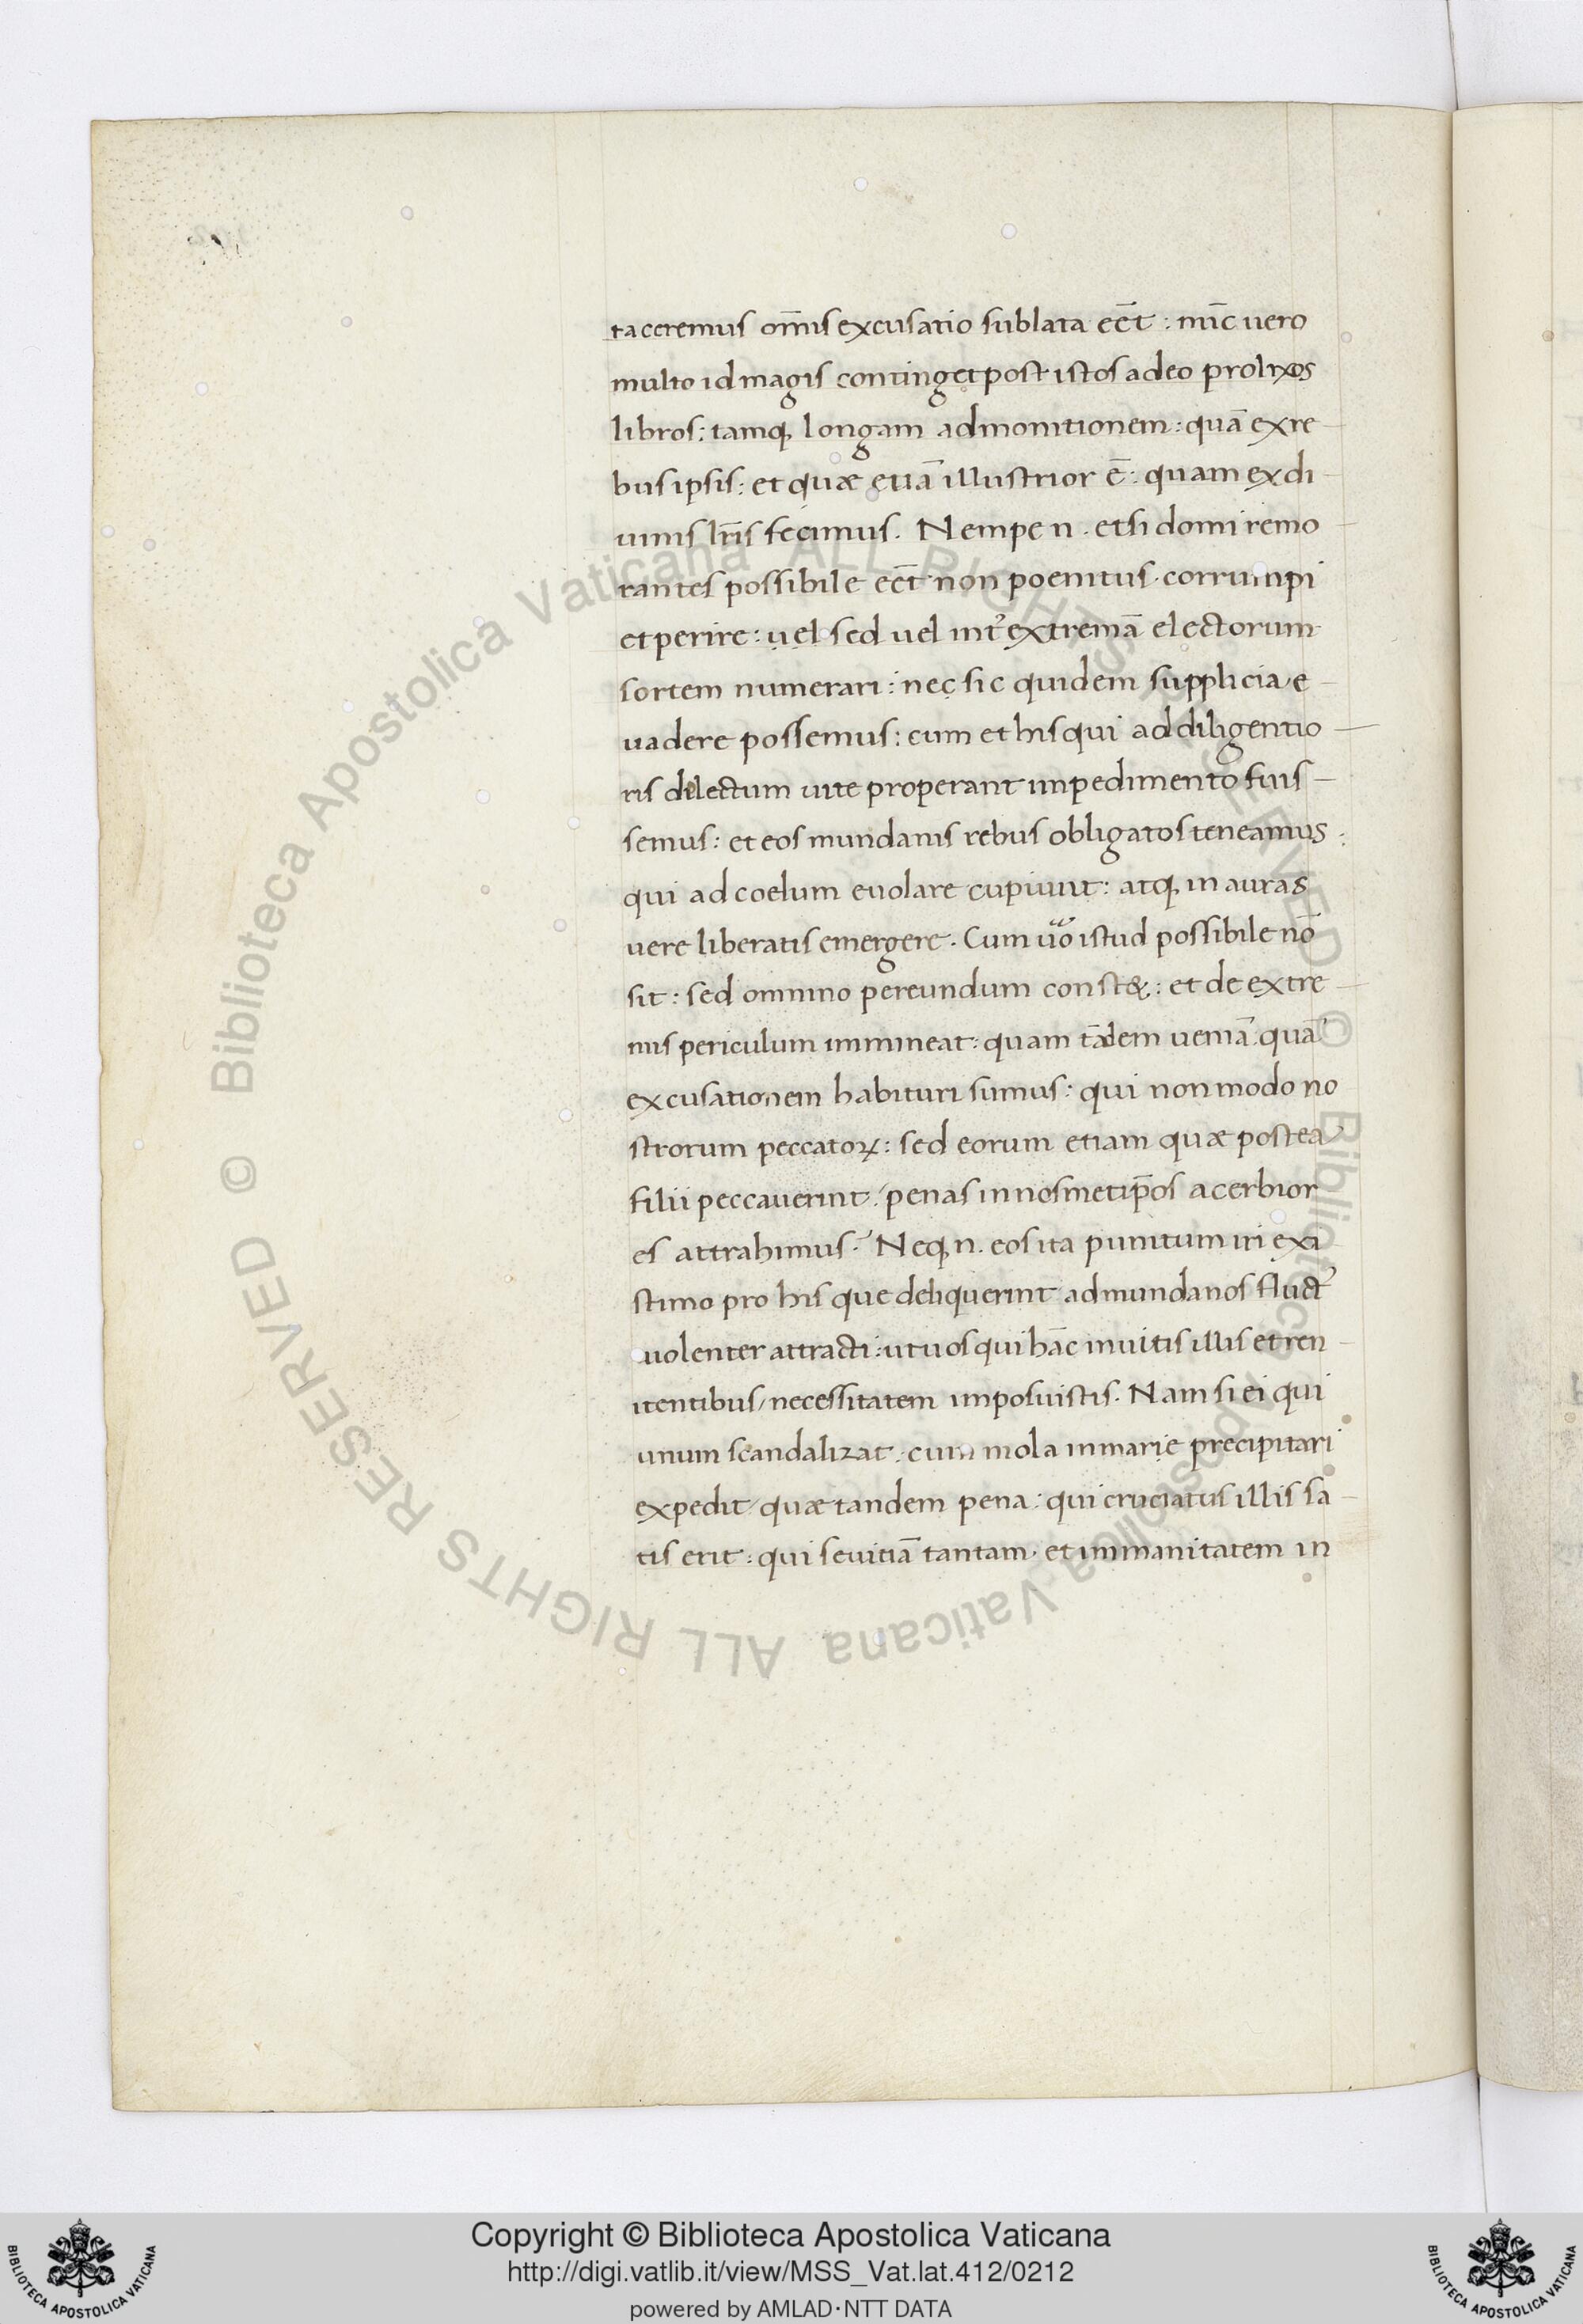 taceremus om̅is excusatio sublata ee̅t : nu̅c uero
multo id magis continget post istos adeo prolixos
libros : tamq; longam admonitionem : qua̅ ex re
bus ipsis : et quæ etia̅ illustrior e̅ : quam ex di
uinis lr̅is fecimus . Nempe n . etsi domi remo
rantes possibile ee̅t non poenitus corrumpi
et perire : uel sed uel int᷑ extrema̅ electorum
sortem numerari : nec sic quidem supplicia / e
uadere possemus : cum et his qui ad diligentio
ris dilectum uite properant impedimento fuis
semus : et eos mundanis rebus obligatos teneamus :
qui ad coelum euolare cupiunt : atq; in auras
uere liberatis emergere . Cum uo̅ istud possibile no̅
sit : sed omnino pereundum const& : et de extre
mis periculum immineat : quam ta̅dem uenia̅ . qua̅
excusationem habituri sumus : qui non modo no
strorum peccatoꝝ : sed eorum etiam quæ postea
filii peccauerint / penas in nosmetip̅os acerbior
es attrahimus . Neq; n . eos ita punitum iri exi
stimo pro his que deliquerint ad mundanos fluct᷑
uolenter attracti : ut uos qui ha̅c inuitis illis et ren
itentibus / necessitatem imposuistis . Nam si ei qui
unum scandalizat . cum mola in marie precipitari
expedit / quæ tandem pena : qui cruciatus illis sa
tis erit : qui seuitia̅ tantam . et immanitatem in
© Biblioteca Apostolica Vaticana ALL RIGHTS RESERVED © Biblioteca Apostolica Vaticana ALL RIGHTS RESERVED
Copyright © Biblioteca Apostolica Vaticana
http://digi.vatlib.it/view/MSS_Vat.lat.412/0212
powered by AMLAD·NTT DATA
BIBLIOTECA APOSTOLICA VATICANA
BIBLIOTECA APOSTOLICA VATICANA